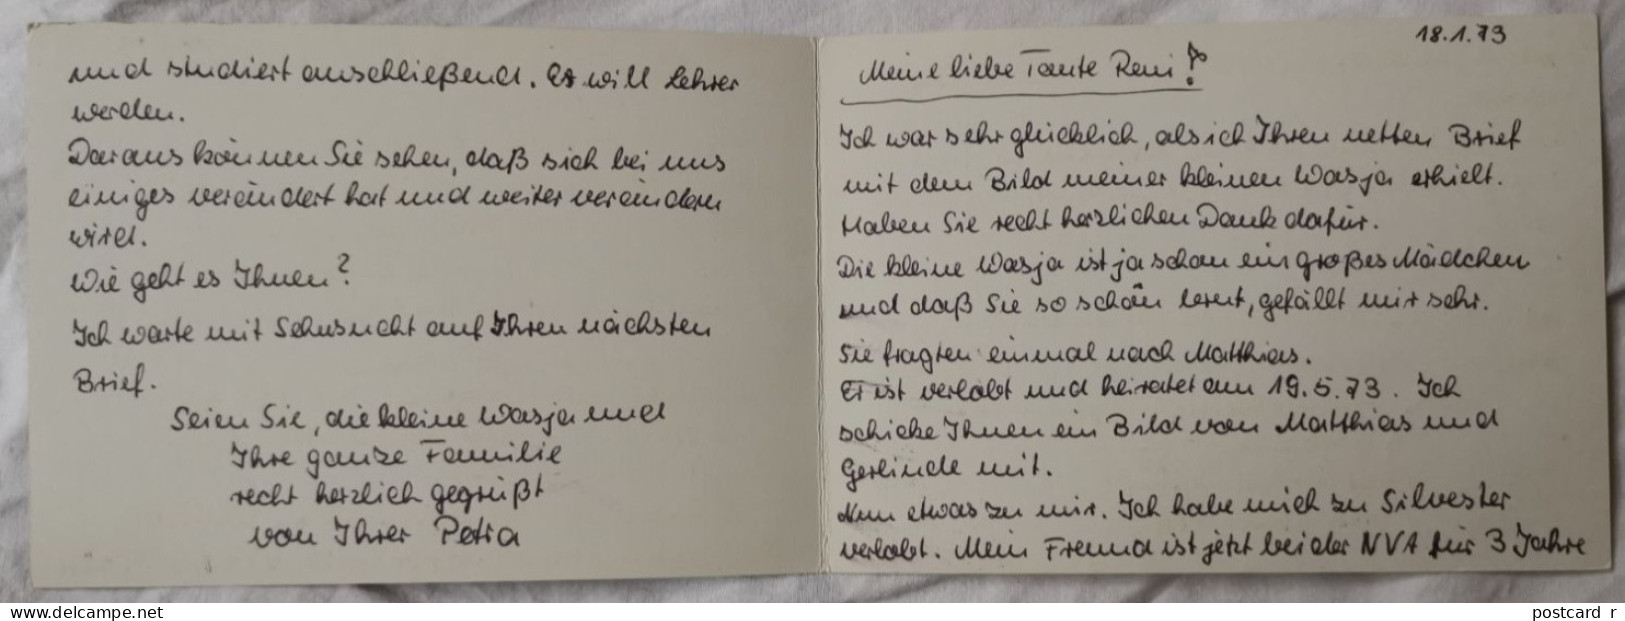 18.1.73
Meine liebe Tante Reni!
Ich war sehr glücklich, als ich Ihren netten Brief
mit dem Bild meiner kleinen Wasja erhielt.
Haben Sie recht herzlichen Dank dafür.
Die kleine Wasja ist ja schon ein großes Mädchen
und daß Sie so schön lernt, gefällt mir sehr.
Sie fragten einmal nach Matthias.
Er ist verlobt und heiratet am 19.5.73. Ich
schicke Ihnen ein Bild von Matthias und
Gerlinde mit.
Nun etwas zu mir. Ich habe mich zu Silvester
verlobt. Mein Freund ist jetzt bei der NVA für 3 Jahre
und studiert anschließend. Er will Lehrer
werden.
Daraus können Sie sehen, daß sich bei uns
einiges verändert hat und weiter verändern
wird.
Wie geht es Ihnen?
Ich warte mit Sehnsucht auf Ihren nächsten
Brief.
Seien Sie, die kleine Wasja und
Ihre ganze Familie
recht herzlich gegrüßt
von Ihrer Petra
www.delcampe.net
postcard_r